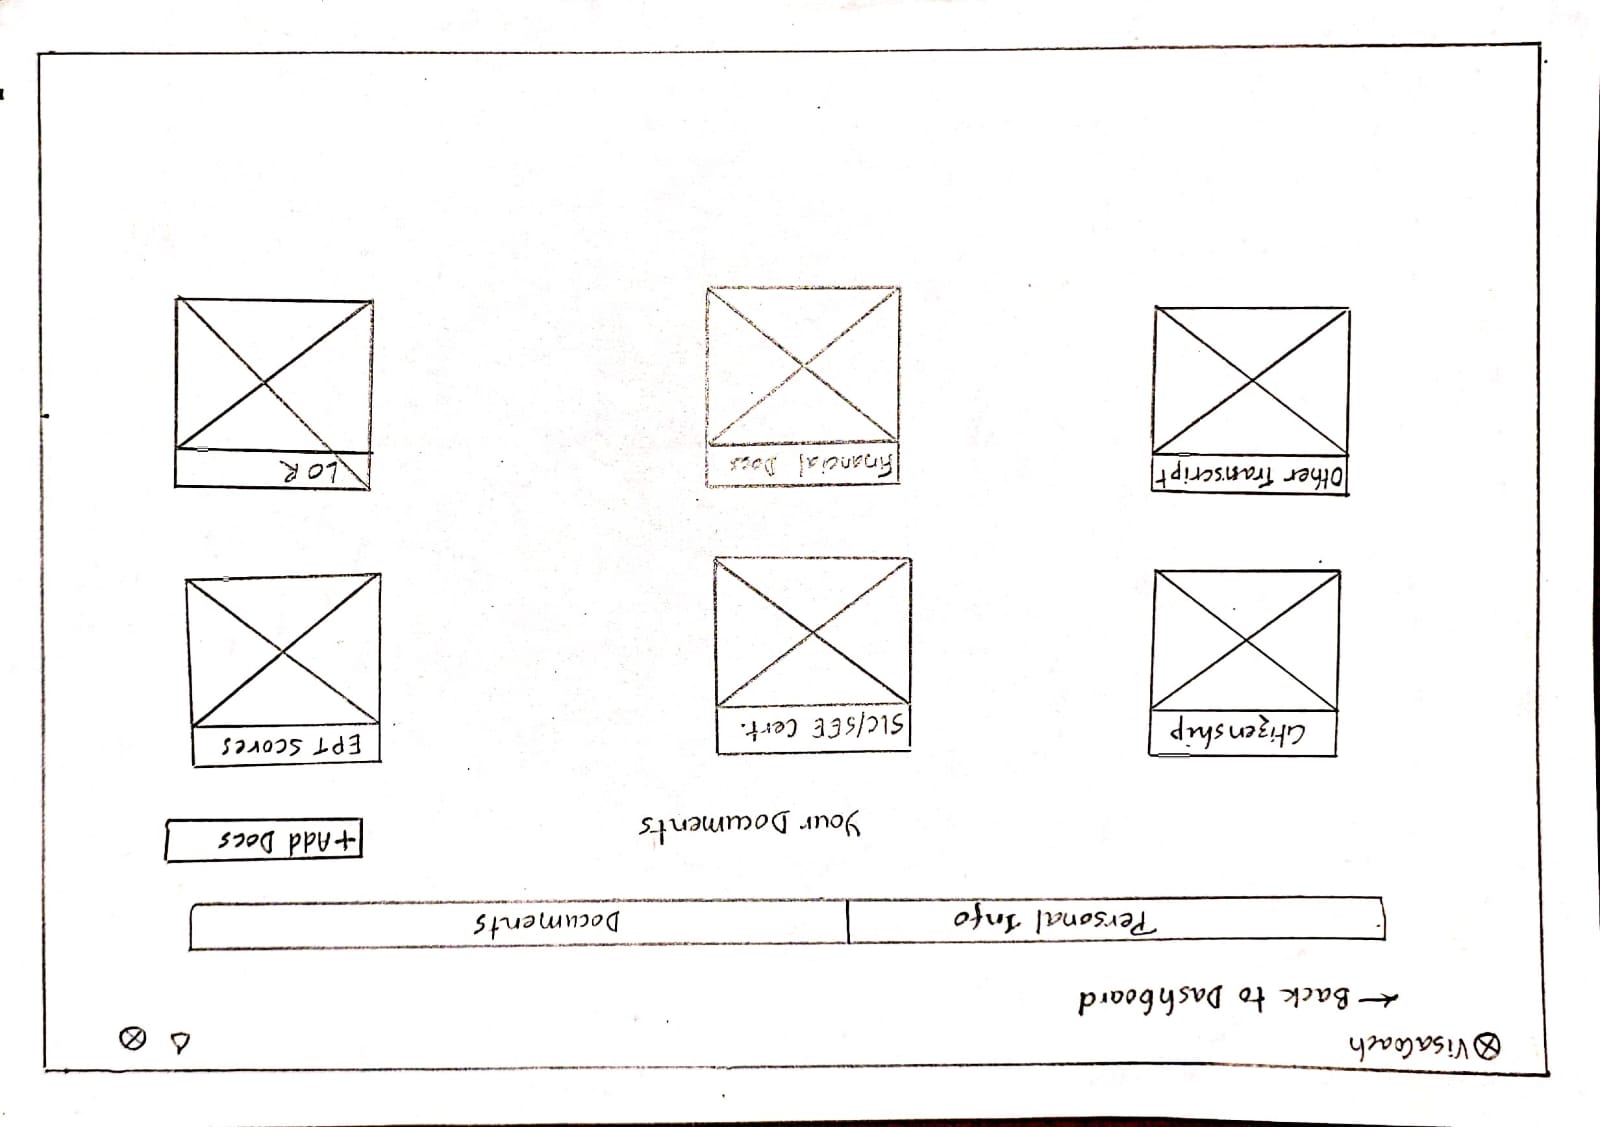 VisaCoach
← Back to Dashboard
Personal Info
Documents
Your Documents
+Add Docs
Citizenship
SLC/SEE Cert.
EPT Scores
Other Transcript
Financial Docs
LOR